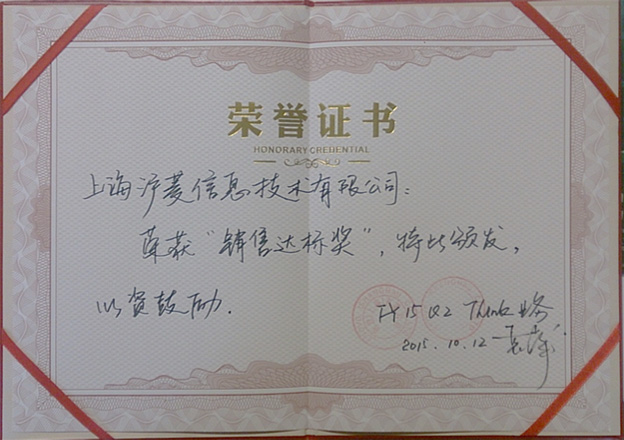 荣誉证书
HONORARY CREDENTIAL
上海沪菱信息技术有限公司:
荣获“销售达标奖”,特此颁发,
以资鼓励.
FY15 Q2 Think 业务
2015.10.12